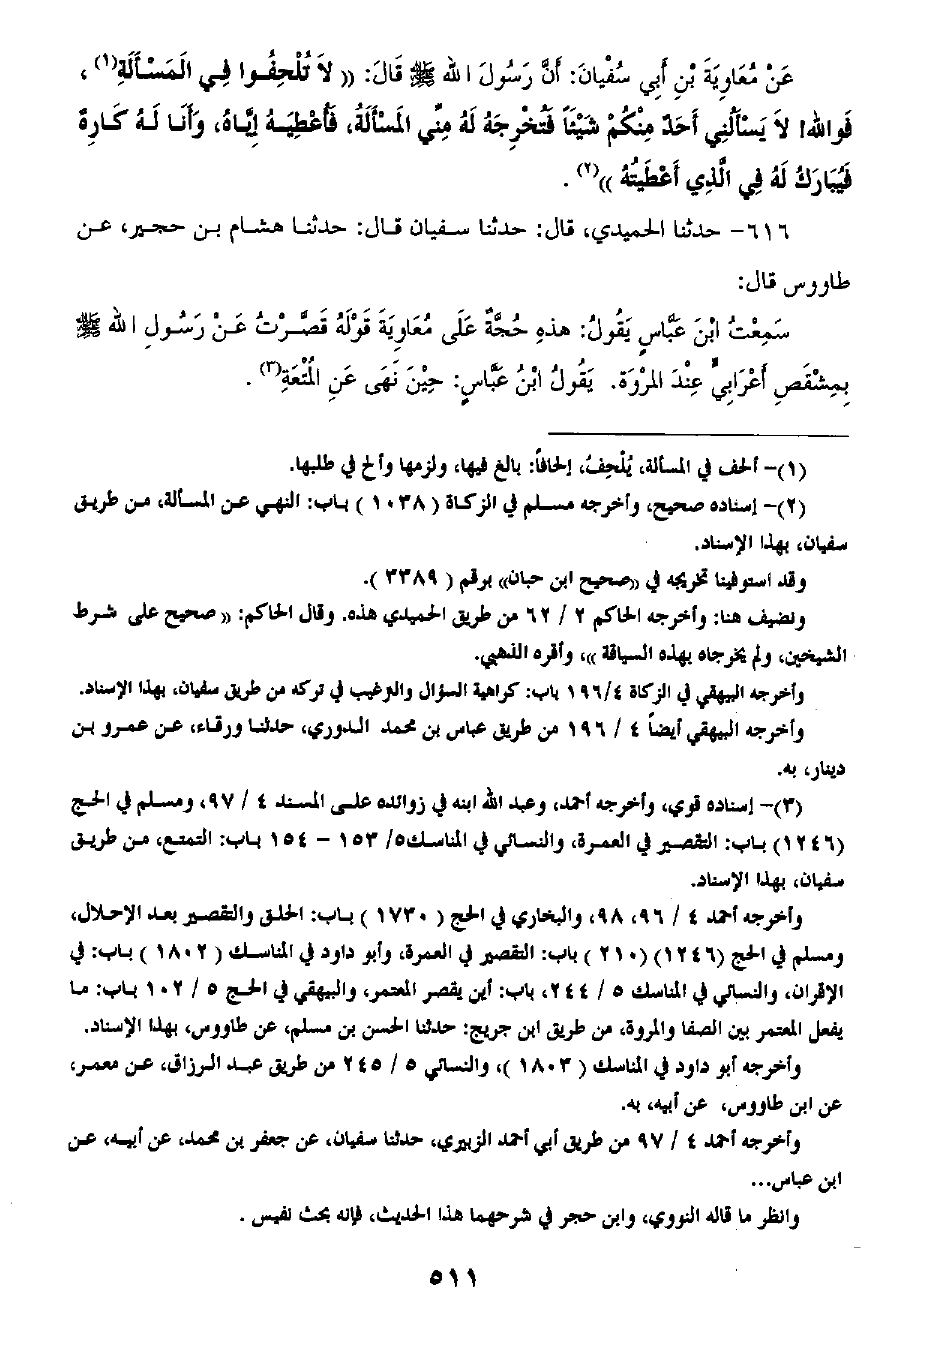 عَنْ مُعَاوِيَةَ بْنِ أَبِي سُفْيَانَ: أَنَّ رَسُولَ اللهِ ﷺ قَالَ: (( لاَ تُلْحِفُوا فِي الْمَسْأَلَةِ(١)،
فَوَاللهِ! لاَ يَسْأَلُنِي أَحَدٌ مِنْكُمْ شَيْئاً فَتُخْرِجَهُ لَهُ مِنِّي الْمَسْأَلَةُ، فَأُعْطِيَهُ إِيَّاهُ، وَأَنَا لَهُ كَارِهٌ
فَيُبَارَكُ لَهُ فِي الَّذِي أَعْطَيْتُهُ ))(٢) .
٦١٦- حدثنا الحميدي، قال: حدثنا سفيان قال: حدثنا هشام بن حجير، عن
طاووس قال:
سَمِعْتُ ابْنَ عَبَّاسٍ يَقُولُ: هذِهِ حُجَّةٌ عَلَى مُعَاوِيَةَ قَوْلَهُ قَصَّرْتُ عَنْ رَسُولِ اللهِ ﷺ
بِمِشْقَصِ أَعْرَابِيٍّ عِنْدَ الْمَرْوَةِ. يَقُولُ ابْنُ عَبَّاسٍ: حِيْنَ نَهَى عَنِ الْمُتْعَةِ(٣) .
(١)- ألحف في المسألة، يُلْحِفُ، إلحافاً: بالغ فيها، ولزمها وألح في طلبها.
(٢)- إسناده صحيح، وأخرجه مسلم في الزكاة ( ١٠٣٨ ) باب: النهي عن المسألة، من طريق
سفيان، بهذا الإسناد.
وقد استوفينا تخريجه في ((صحيح ابن حبان)) برقم ( ٣٣٨٩ ).
ونضيف هنا: وأخرجه الحاكم ٢ / ٦٢ من طريق الحميدي هذه. وقال الحاكم: (( صحيح على شرط
الشيخين، ولم يخرجاه بهذه السياقة ))، وأقره الذهبي.
وأخرجه البيهقي في الزكاة ١٩٦/٤ باب: كراهية السؤال والترغيب في تركه من طريق سفيان، بهذا الإسناد.
وأخرجه البيهقي أيضاً ٤ / ١٩٦ من طريق عباس بن محمد الدوري، حدثنا ورقاء، عن عمرو بن
دينار، به.
(٣)- إسناده قوي، وأخرجه أحمد، وعبد الله ابنه في زوائده على المسند ٤ / ٩٧، ومسلم في الحج
(١٢٤٦) باب: التقصير في العمرة، والنسائي في المناسك٥/ ١٥٣ - ١٥٤ باب: التمتع، من طريق
سفيان، بهذا الإسناد.
وأخرجه أحمد ٤ / ٩٦، ٩٨، والبخاري في الحج ( ١٧٣٠ ) باب: الحلق والتقصير بعد الإحلال،
ومسلم في الحج (١٢٤٦) (٢١٠ ) باب: التقصير في العمرة، وأبو داود في المناسك ( ١٨٠٢ ) باب: في
الإقران، والنسائي في المناسك ٥ / ٢٤٤، باب: أين يقصر المعتمر، والبيهقي في الحج ٥ / ١٠٢ باب: ما
يفعل المعتمر بين الصفا والمروة، من طريق ابن جريج: حدثنا الحسن بن مسلم، عن طاووس، بهذا الإسناد.
وأخرجه أبو داود في المناسك ( ١٨٠٣ )، والنسائي ٥ / ٢٤٥ من طريق عبد الرزاق، عن معمر،
عن ابن طاووس، عن أبيه، به.
وأخرجه أحمد ٤ / ٩٧ من طريق أبي أحمد الزبيري، حدثنا سفيان، عن جعفر بن محمد، عن أبيه، عن
ابن عباس...
وانظر ما قاله النووي، وابن حجر في شرحهما هذا الحديث، فإنه بحث نفيس .
٥١١